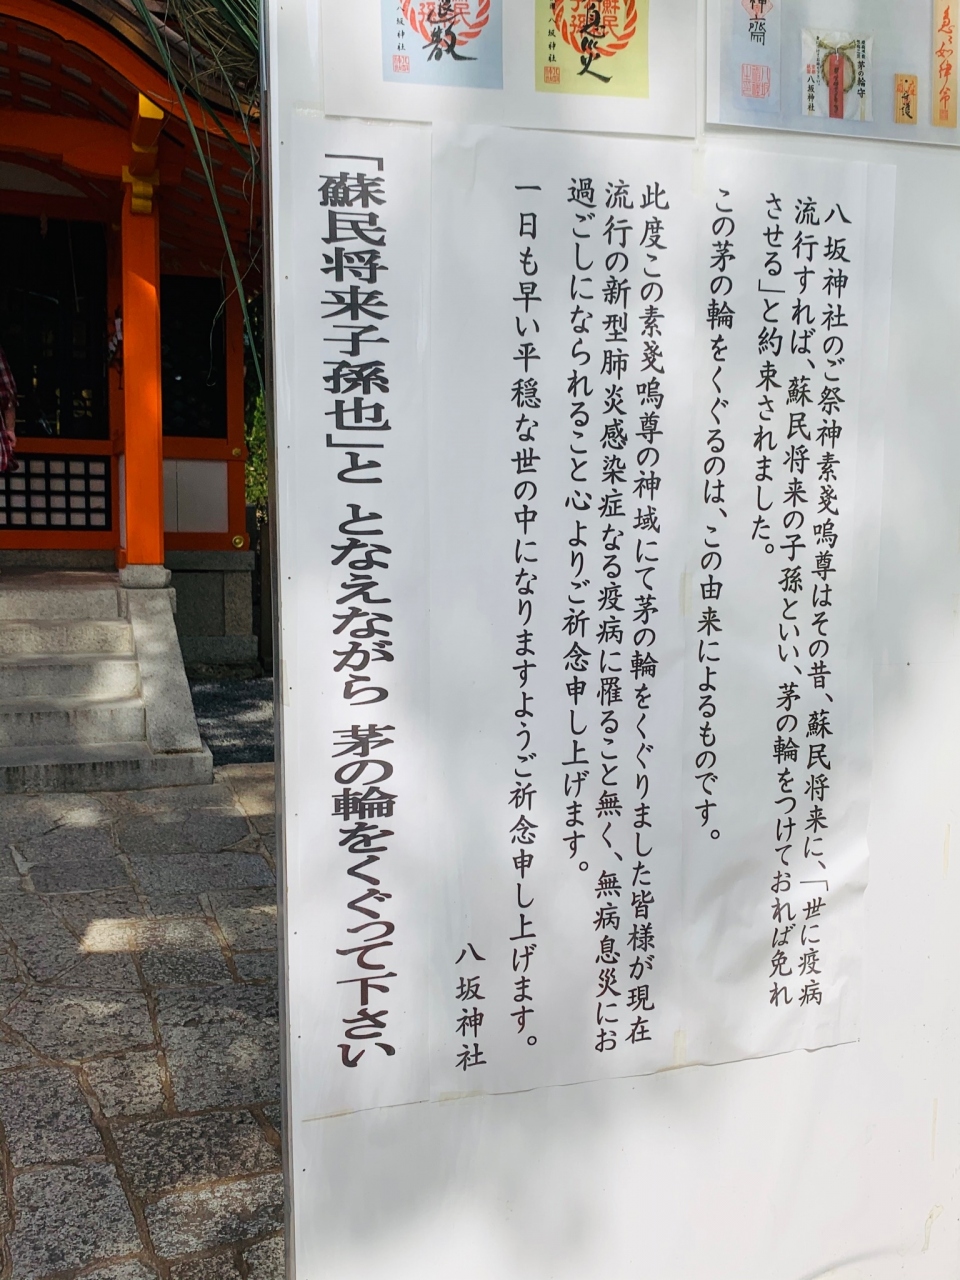 八坂神社
八坂神社
息災
神齋
茅の輪守
八坂神社
八坂神社のご祭神素戔嗚尊はその昔、蘇民将来に、「世に疫病
流行すれば、蘇民将来の子孫といい、茅の輪をつけておれば免れ
させる」と約束されました。
この茅の輪をくぐるのは、この由来によるものです。
此度この素戔嗚尊の神域にて茅の輪をくぐりました皆様が現在
流行の新型肺炎感染症なる疫病に罹ること無く、無病息災にお
過ごしになられること心よりご祈念申し上げます。
一日も早い平穏な世の中になりますようご祈念申し上げます。
八坂神社
「蘇民将来子孫也」と となえながら 茅の輪をくぐって下さい